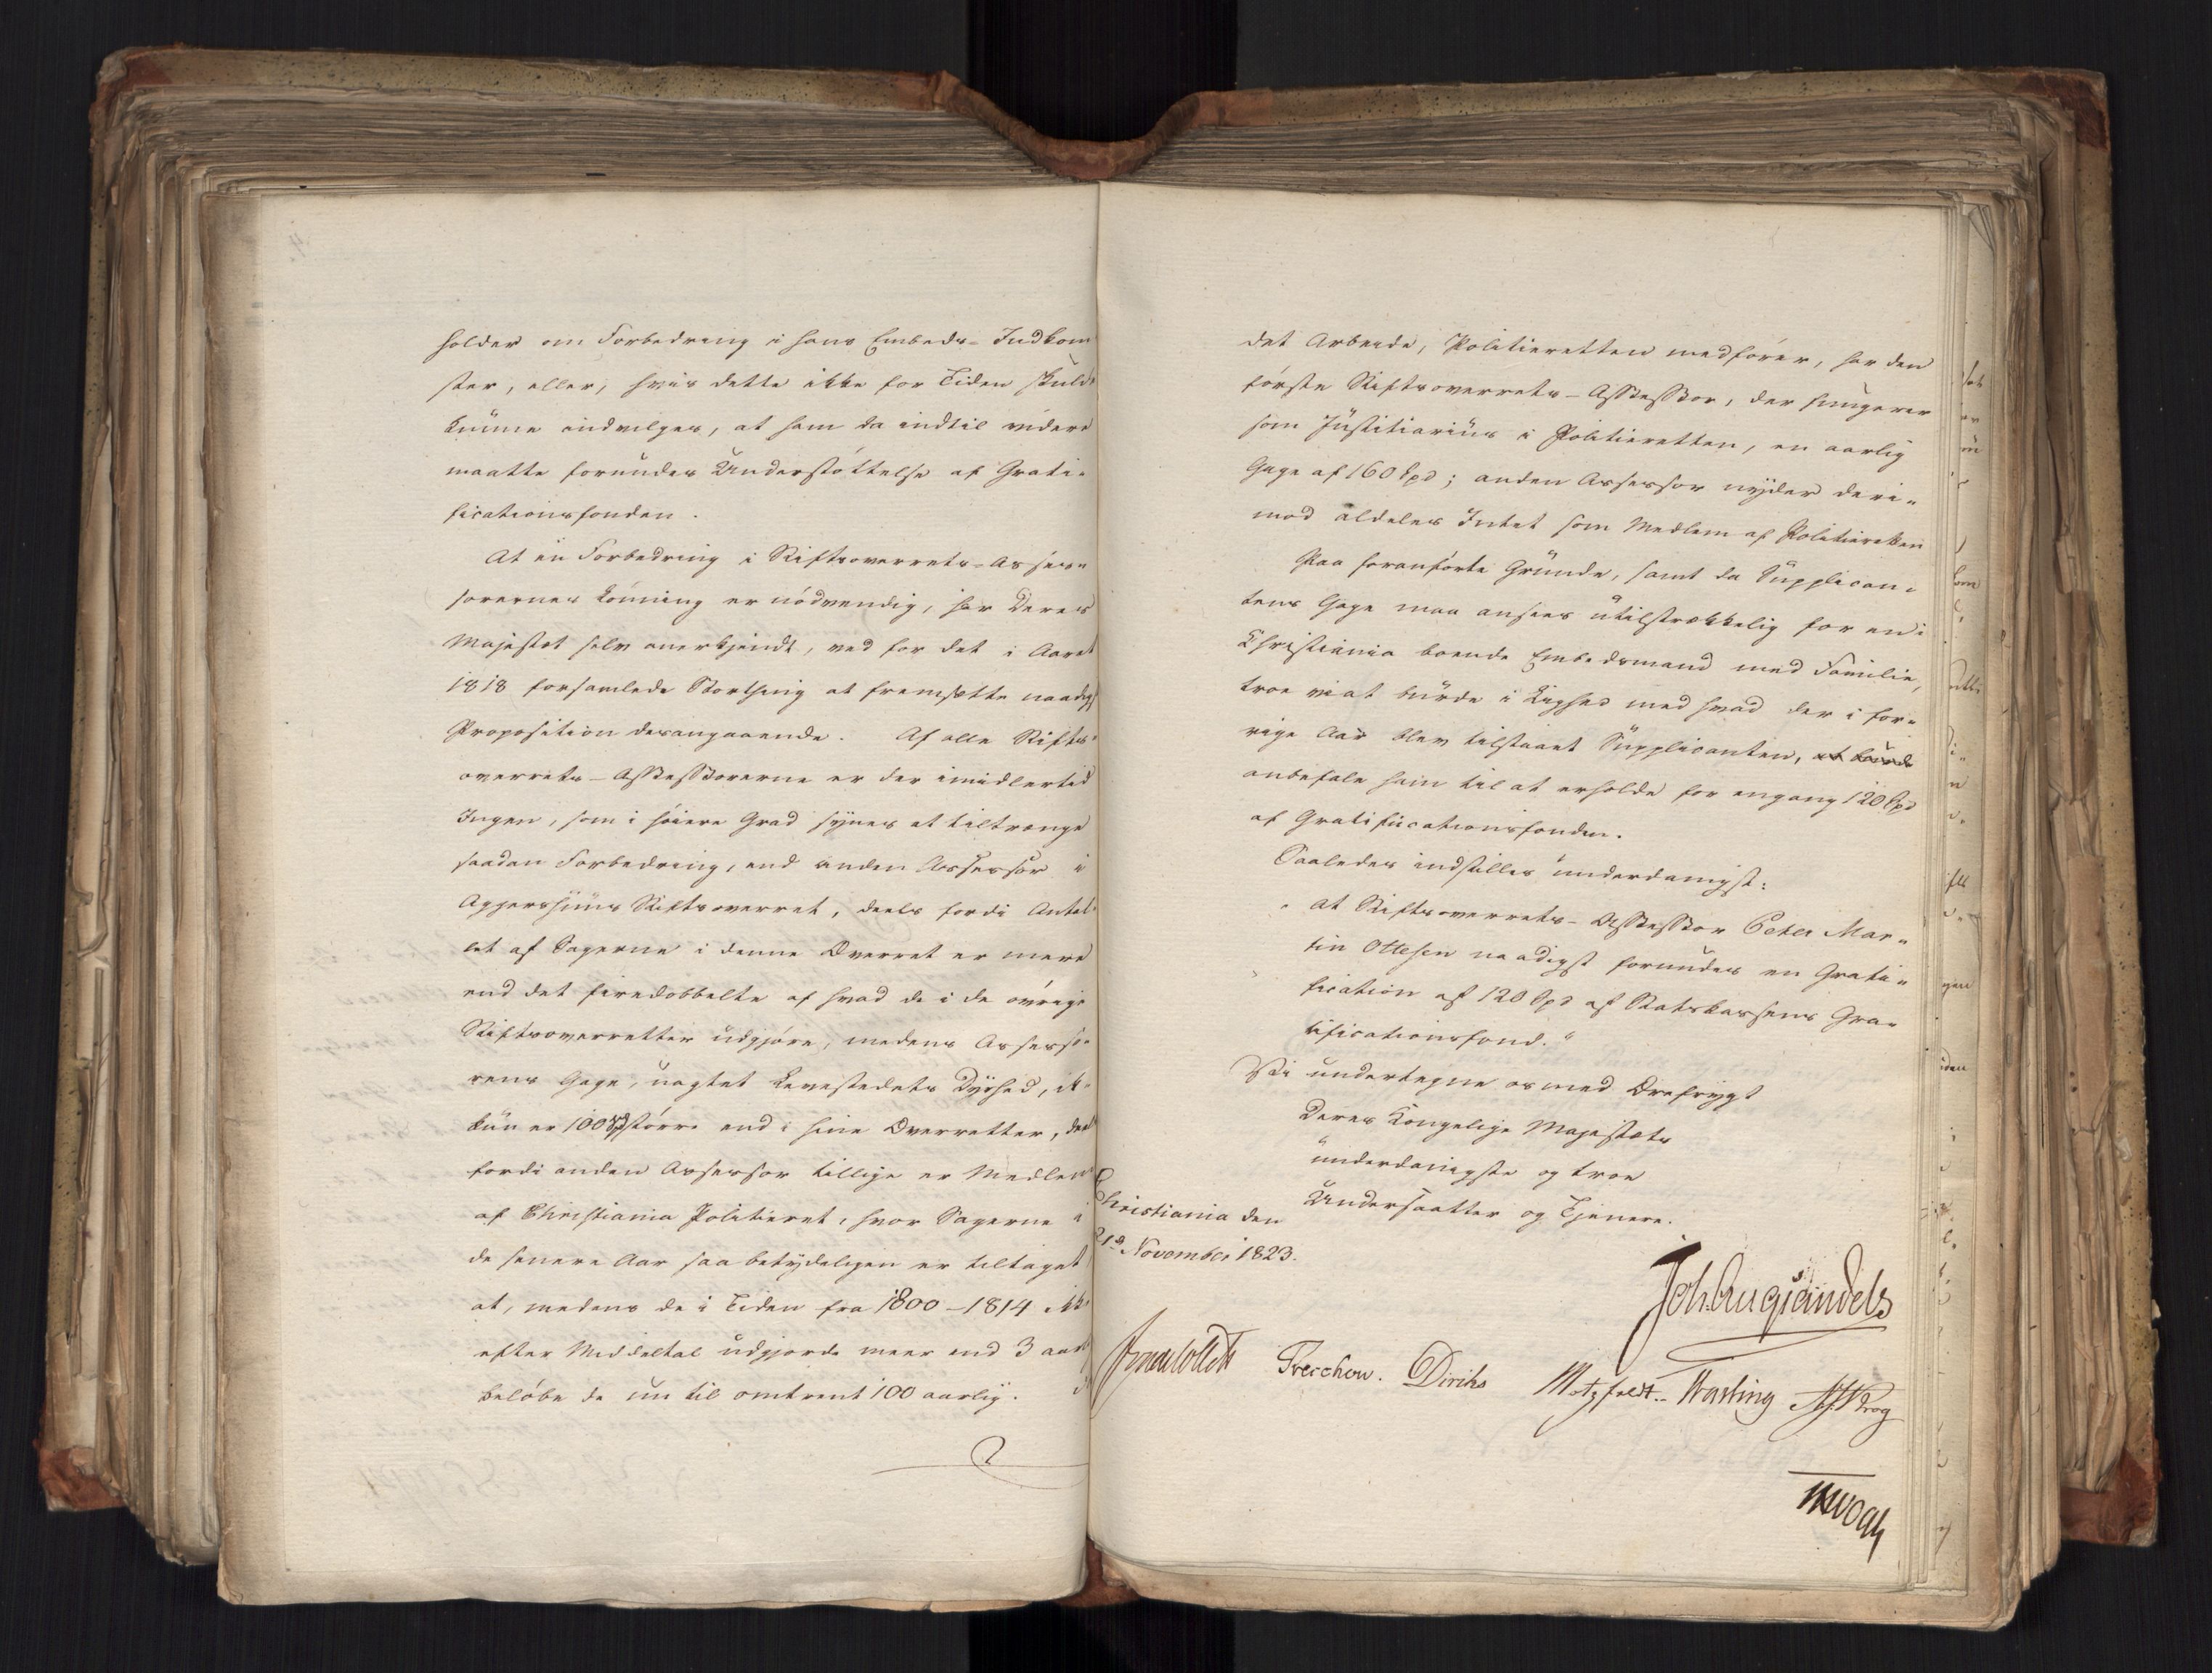 holder om Forbedring i hans Embeds-Indkom
ster, eller, hvis dette ikke for Tiden skulde
kunne indvilges, at ham da indtil videre
maatte forundes Understøttelse af Grati-
ficationsfonden.
At en Forbedring i Stiftsoverrets-Asses-
sorernes Lønning er nødvendig, har Deres
Majestet selv anerkjendt, ved for det i Aaret
1818 forsamlede Storthing at fremsette naadigst
Proposition desangaaende. Af alle Stifts-
overrets-Assessorerne er der imidlertid
Ingen, som i høiere Grad synes at tiltrænge
saadan Forbedring, end anden Assessor i
Aggershuus Stiftsoverret, deels fordi Antal-
let af Sagerne i denne Overret er mere
end det firedobbelte af hvad de i de øvrige
Stiftsoverretter udgjøre, medens Assesso-
rens Gage, uagtet Levestedets Dyrhed, ik-
kun er 100 Spd større end i hine Overretter, deels
fordi anden Assessor tillige er Medlem
af Christiania Politieret, hvor Sagerne i
de senere Aar saa betydeligen er tiltaget
at, medens de i Tiden fra 1800-1814 ikke
efter Middeltal udgjorde meer end 3 aarlig
beløbe de nu til omtrent 100 aarlig.
det Arbeide, Politieretten medfører, har den
første Stiftsoverrets-Assessor, der fungerer
som Justitiarius i Politieretten, en aarlig
Gage af 160 Spd; anden Assessor nyder deri-
mod aldeles Intet som Medlem af Politieretten
Paa foranførte Grunde, samt da Supplican-
tens Gage maa ansees utilstrækkelig for en i
Christiania boende Embedsmand med Familie,
troe vi at burde i Liighed med hvad der i for-
rige Aar blev tilstaaet Supplicanten, at burde
anbefale ham til at erholde for engang 120 Spd
af Gratificationsfonden.
Saaledes indstilles underdanigst:
" at Stiftsoverrets-Assessor Peter Mar-
tin Ottesen naadigst forundes en Grati-
fication af 120 Spd af Statskassens Gra-
tificationsfond."
Vi undertegne os med Ærefrygt
Deres Kongelige Majestæts
underdanigste og troe
Undersaatter og Tjenere.
Christiania den
21de November 1823.
Joh. Aug. Sandels
Jonas Collett Treschow. Diriks Motzfeldt. Fasting A. Krog
Vogt